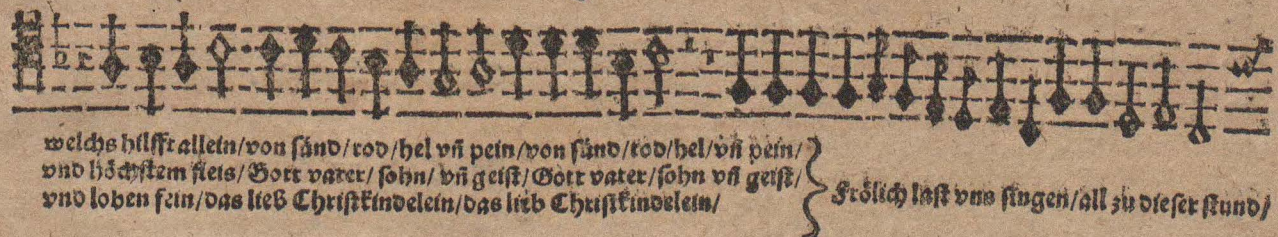 welchs hilfft allein/von sünd/tod/hel vñ pein/von sünd/tod/hel/vñ pein/
vnd höchstem fleis/Gott vater/sohn/vñ geist/Gott vater/sohn vñ geist/
vnd loben fein/das lieb Christkindelein/das lieb Christkindelein/
Frölich last vns singen/all zu dieser stund/